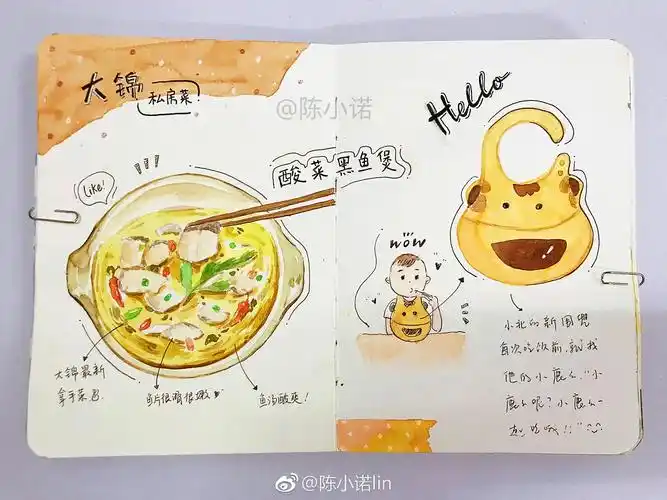 大锦
私房菜
@陈小诺
Like!
酸菜黑鱼煲
大锦最新
拿手菜
鱼片很嫩很嫩
鱼汤酸爽!
Hello
wow
小北的新围兜
每次吃饭前,就找
他的小鹿,"小
鹿呢?小鹿一
起吃哦!!"
@陈小诺lin